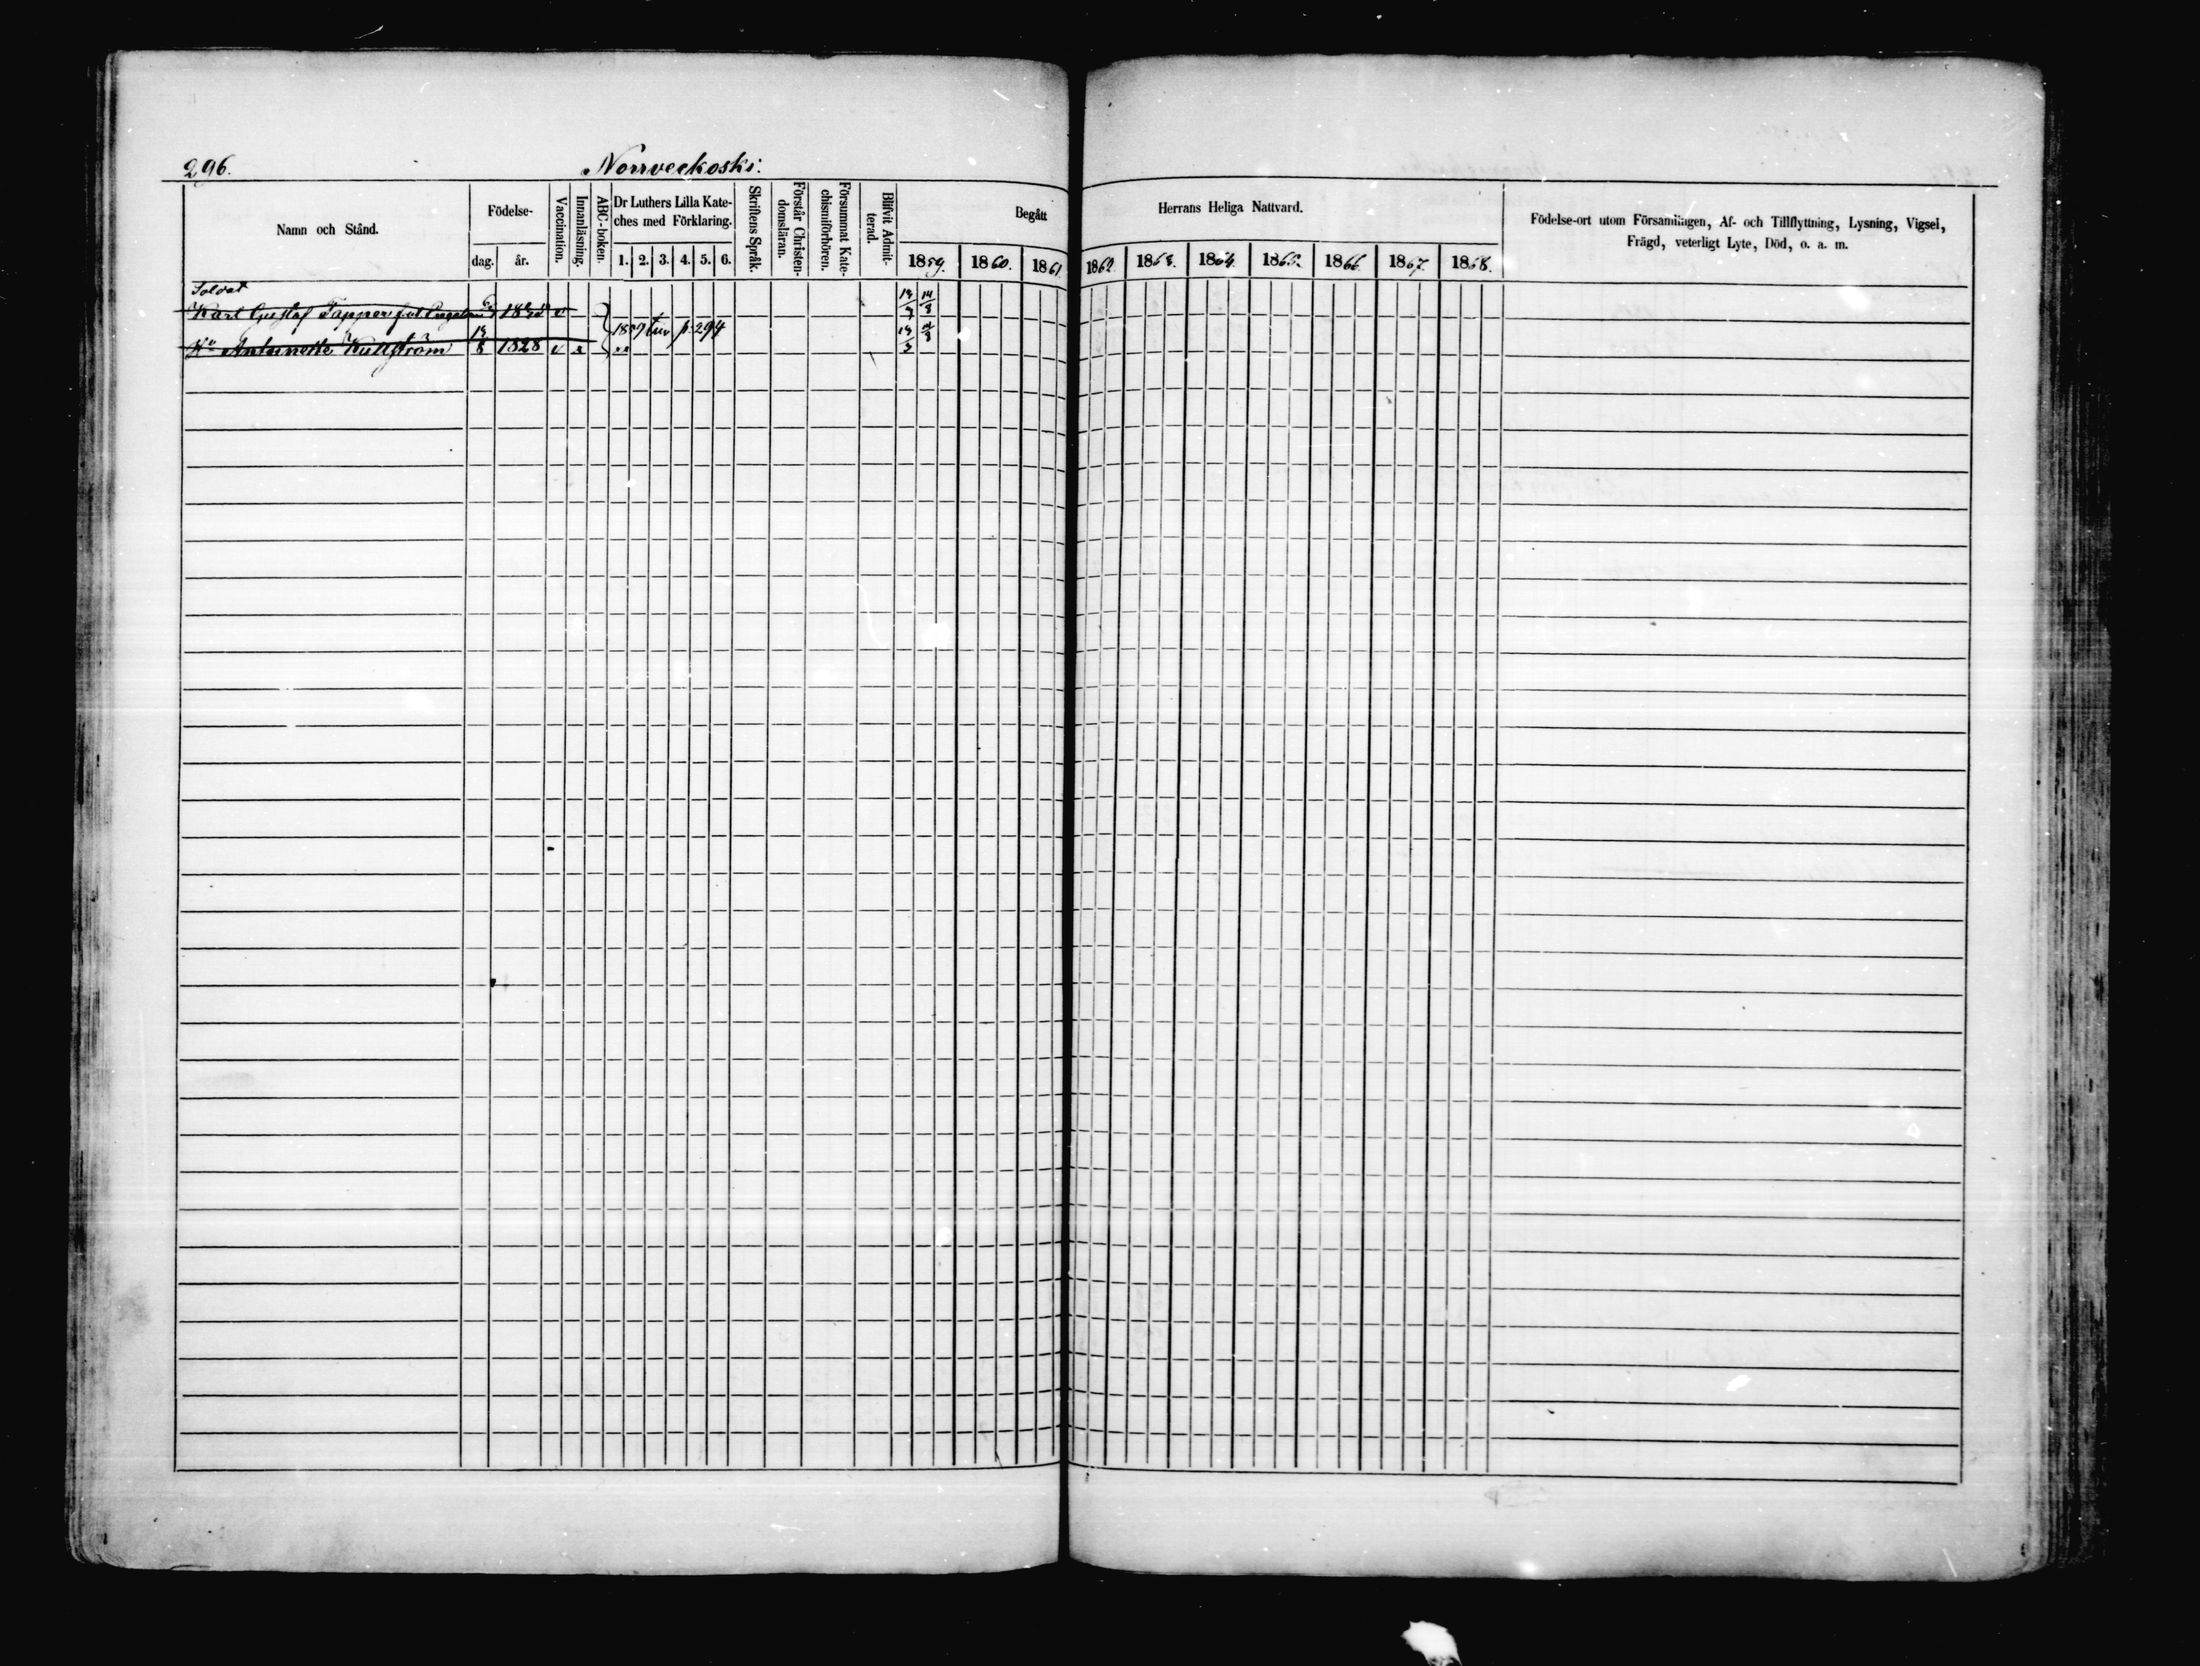 296.
Norrveckoski.
Namn och Stånd.
Födelse-
dag.
år.
Vaccination.
Innanläsning.
ABC-boken.
Dr Luthers Lilla Kate-
ches med Förklaring.
1. 2. 3. 4. 5. 6.
Skriftens Språk.
Förstår Christen-
domsläran.
Försummat Kate-
chismiförhören.
Blifvit Admit-
terad.
Begått
Herrans Heliga Nattvard.
1859. 1860. 1861. 1862. 1863. 1864. 1865. 1866. 1867. 1868.
Födelse-ort utom Församlingen, Af- och Tillflyttning, Lysning, Vigsel,
Frägd, veterligt Lyte, Död, o. a. m.
Soldat
Karl Gustaf Tapper v
1859 p. 294
Antoinette Kullström 1828 v x